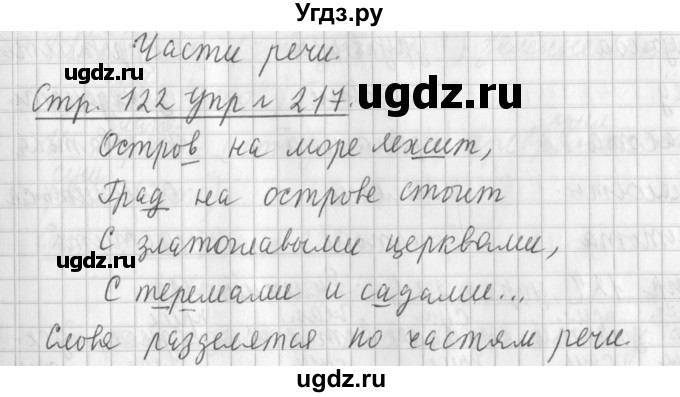 Угдз.ру
Части речи.
ugdz.ru
Стр. 122 Упр № 217.
ugdz.ru
Остров на море лежит,
Град на острове стоит
С златоглавыми церквами,
ugdz.ru
С теремами и садами...
Слова разделятся по частям речи.
ugdz.ru